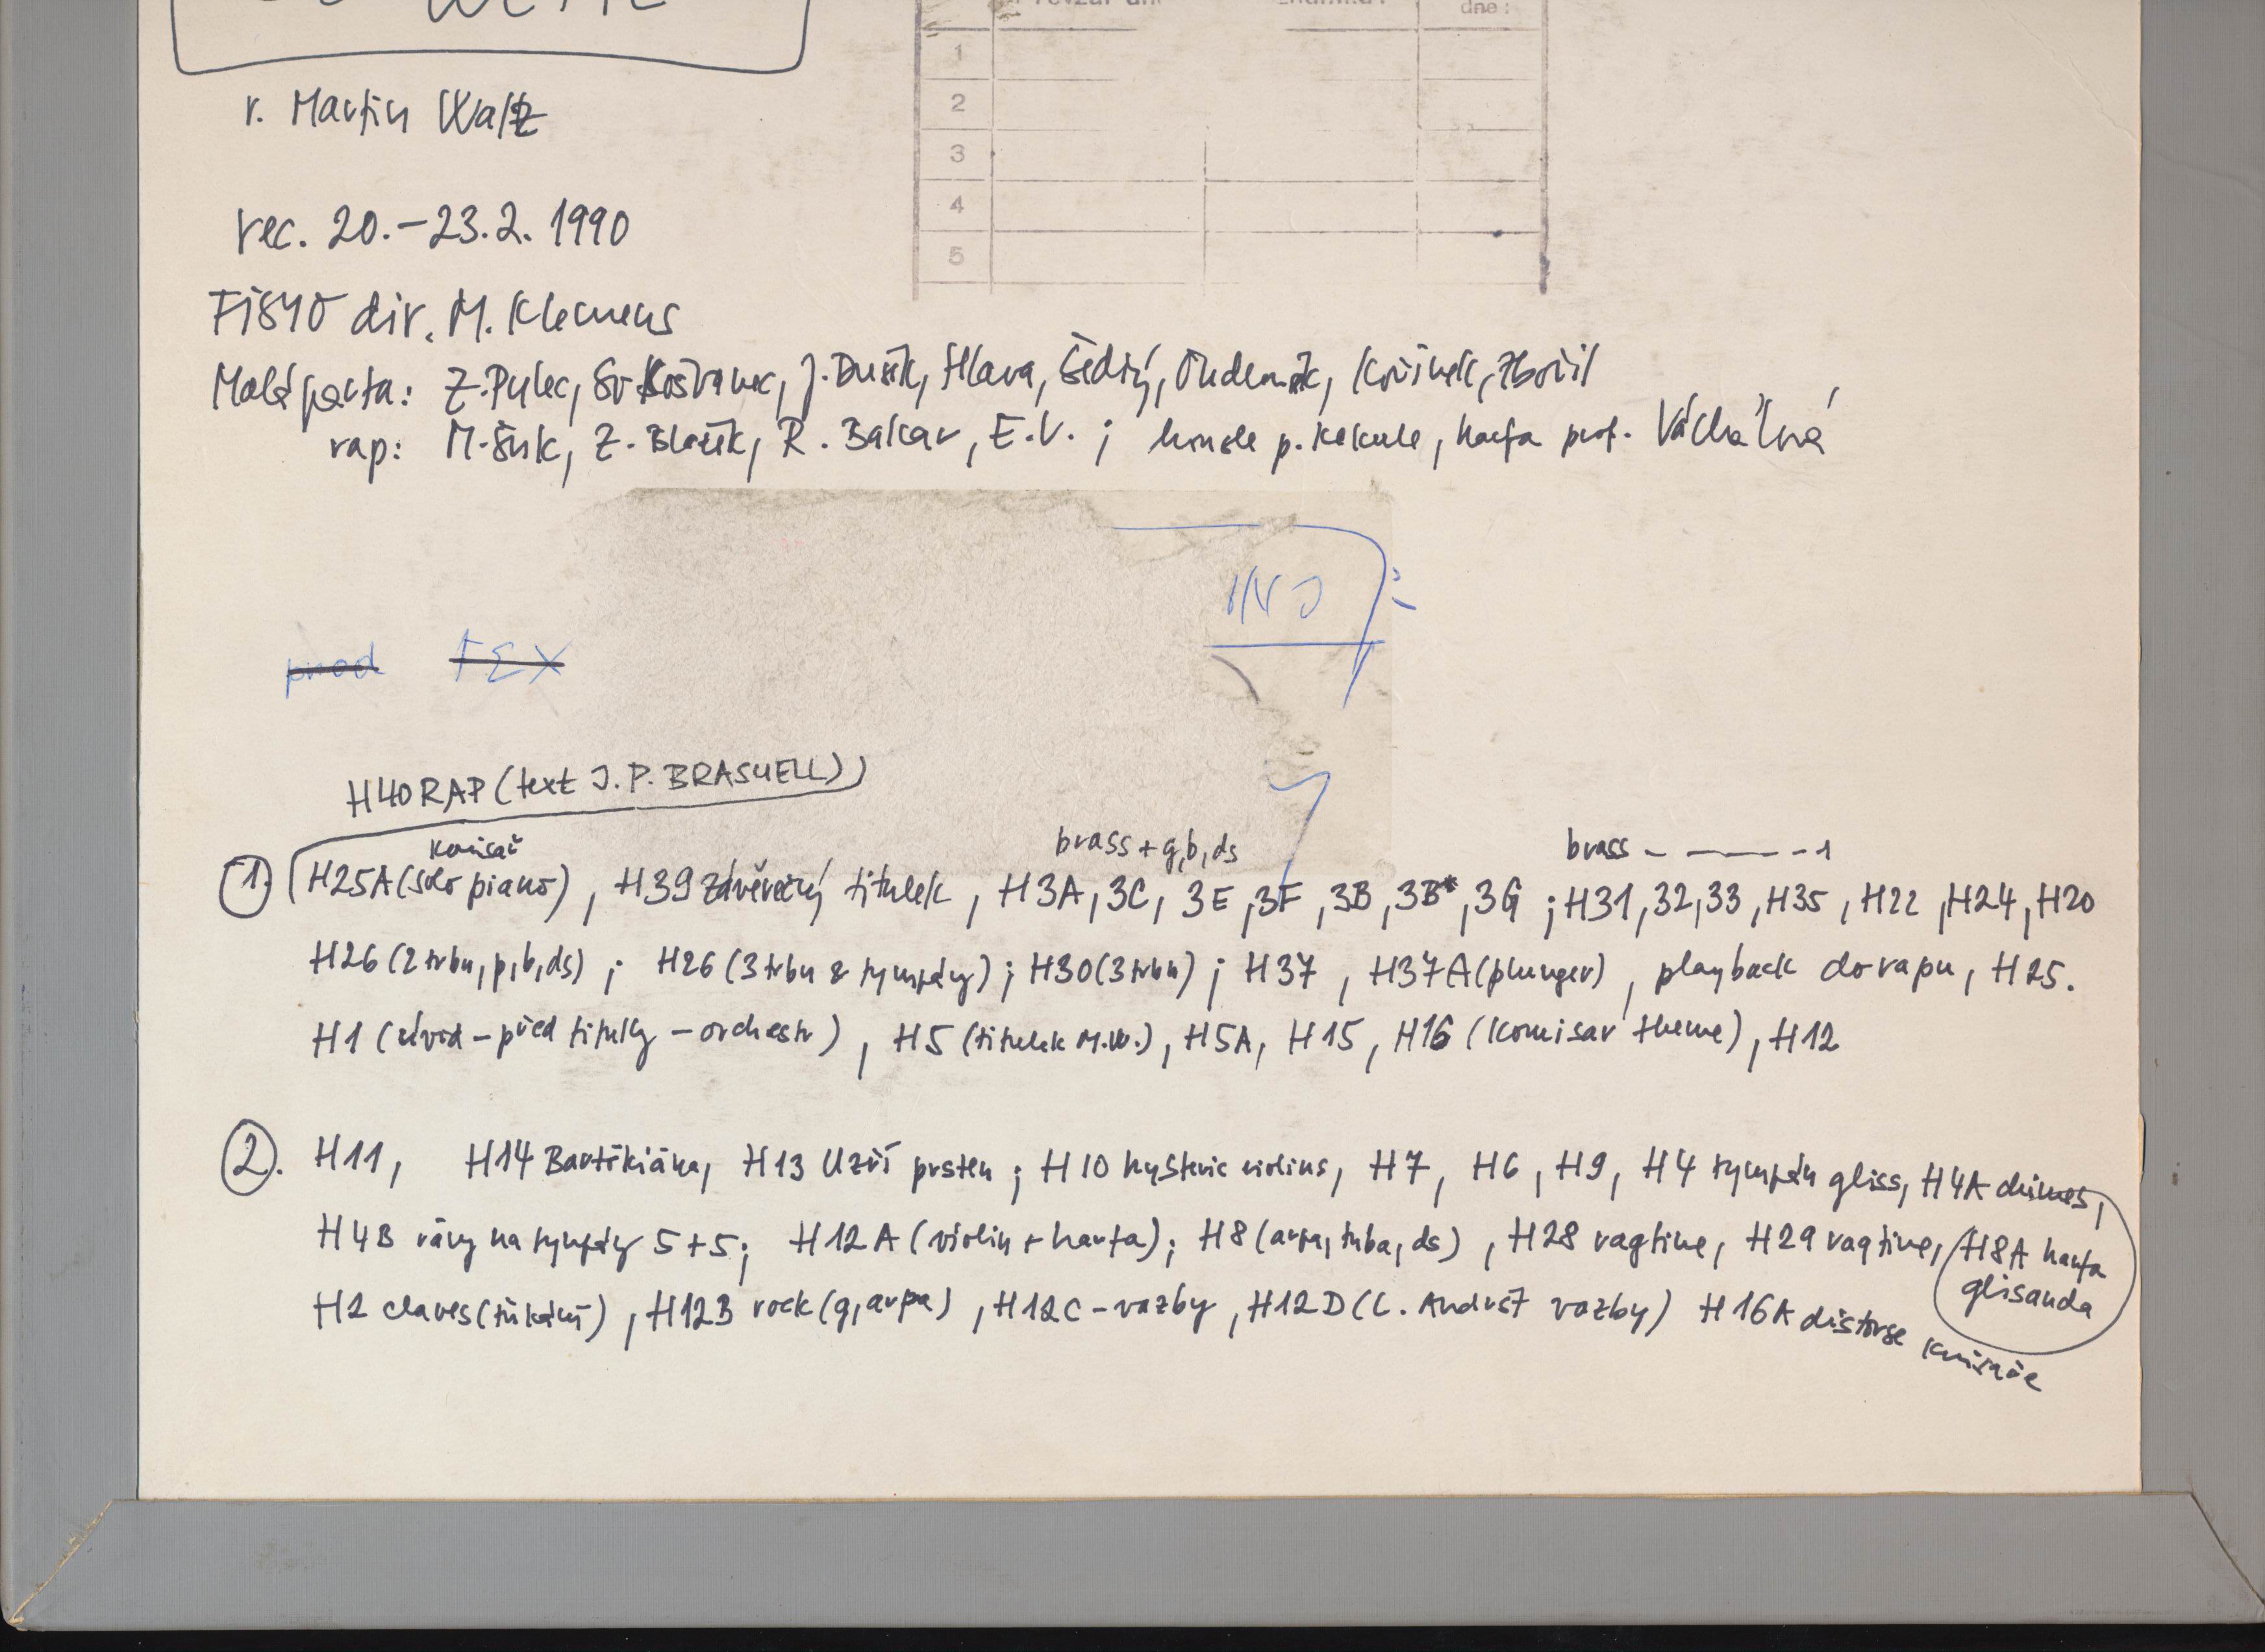 r. Martin Waltz
dne:
1
2
3
4
5
rec. 20.–23.2. 1990
FISYO dir. M. Klemens
Malá parta: Z. Pulec, Sv. Košvanec, J. Dušík, Hlava, Šedivý, Ondemák, Kořínek, Zbořil
rap: M. Šnk, Z. Blažík, R. Balcar, E.V. ; housle p. Kekule, harfa prof. Váchalová
INJ
prod TEX
H40 RAP (text J. P. BRASHELL))
komisař
brass + g, b, ds
brass – — – 1
1. H25A (solo piano), H39 závěrečný titulek, H3A, 3C, 3E, 3F, 3B, 3B*, 3G ; H31, 32, 33, H35, H22, H24, H20
H26 (2 trbn, p, b, ds) ; H26 (3 trbn & tympány) ; H30 (3 trbn) ; H37, H37A (plunger), playback do rapu, H25.
H1 (úvod – před titulky – orchestr), H5 (titulek M.W.), H5A, H15, H16 (komisař theme), H12
2. H11, H14 Bartókiána, H13 Uzří prsten ; H10 hysteric violins, H7, H6, H9, H4 tympán gliss, H4A chimes,
H4B rány na tympány 5+5; H12A (violin + harfa); H8 (arpa, tuba, ds), H28 ragtime, H29 ragtime, H8A harfa
glisanda
H2 claves (ťukání), H12B rock (g, arpa), H12C – vazby, H12D (L. Andršt vazby) H16A distorse komisaře